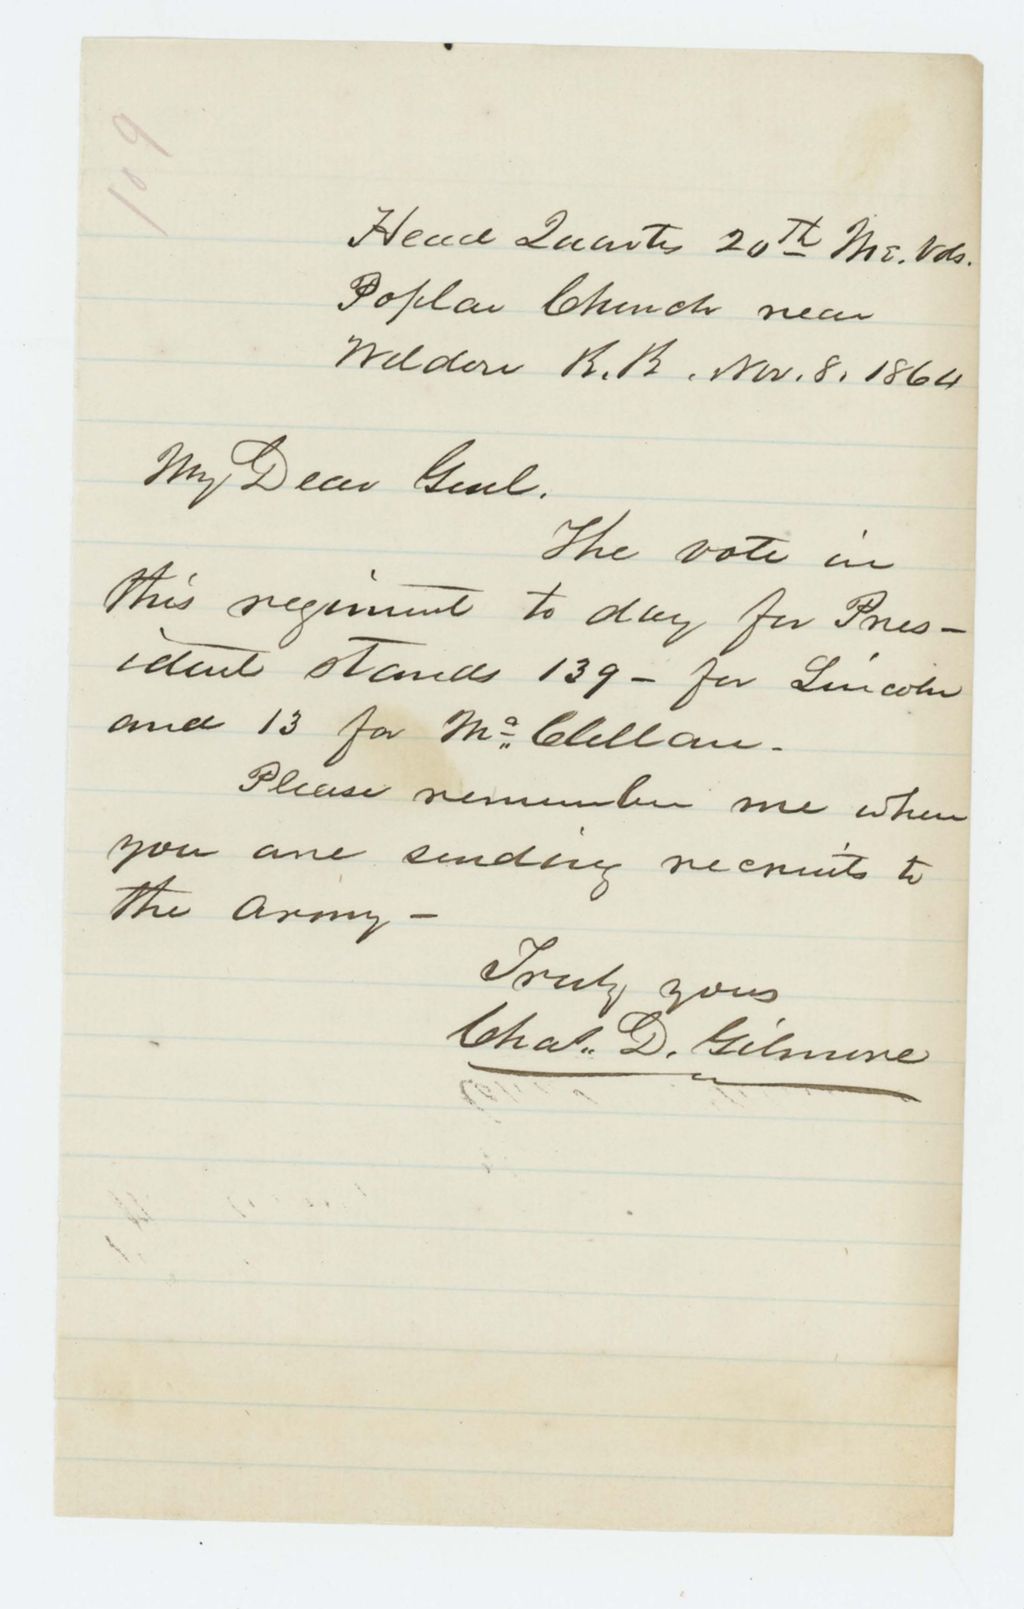 109
Head Quarters 20th Me. Vols.
Poplar Church near
Weldon R.R. Nov. 8. 1864
My Dear Genl.
The vote in
this regiment to day for Pres-
ident stands 139 - for Lincoln
and 13 for Mc. Clellan.
Please remember me when
you are sending recruits to
the army -
Truly yours
Chas. D. Gilmore